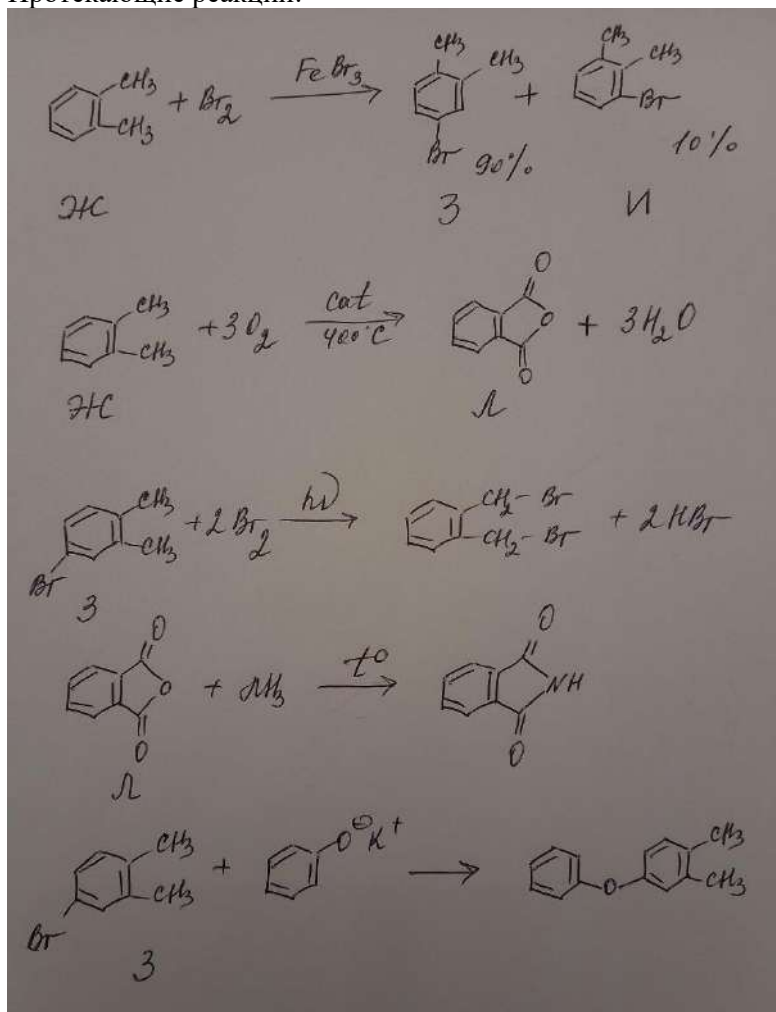 Протекающие реакции:
CH3 CH3 + Br2 FeBr3 CH3 CH3 Br 90% + CH3 CH3 Br 10%
Ж З И
CH3 CH3 + 3O2 cat 400°C O O O + 3H2O
Ж Л
Br CH3 CH3 + 2Br2 hν CH2-Br CH2-Br + 2HBr
З
O O O + NH3 t° O NH O
Л
Br CH3 CH3 + O⊖K+ O CH3 CH3
З